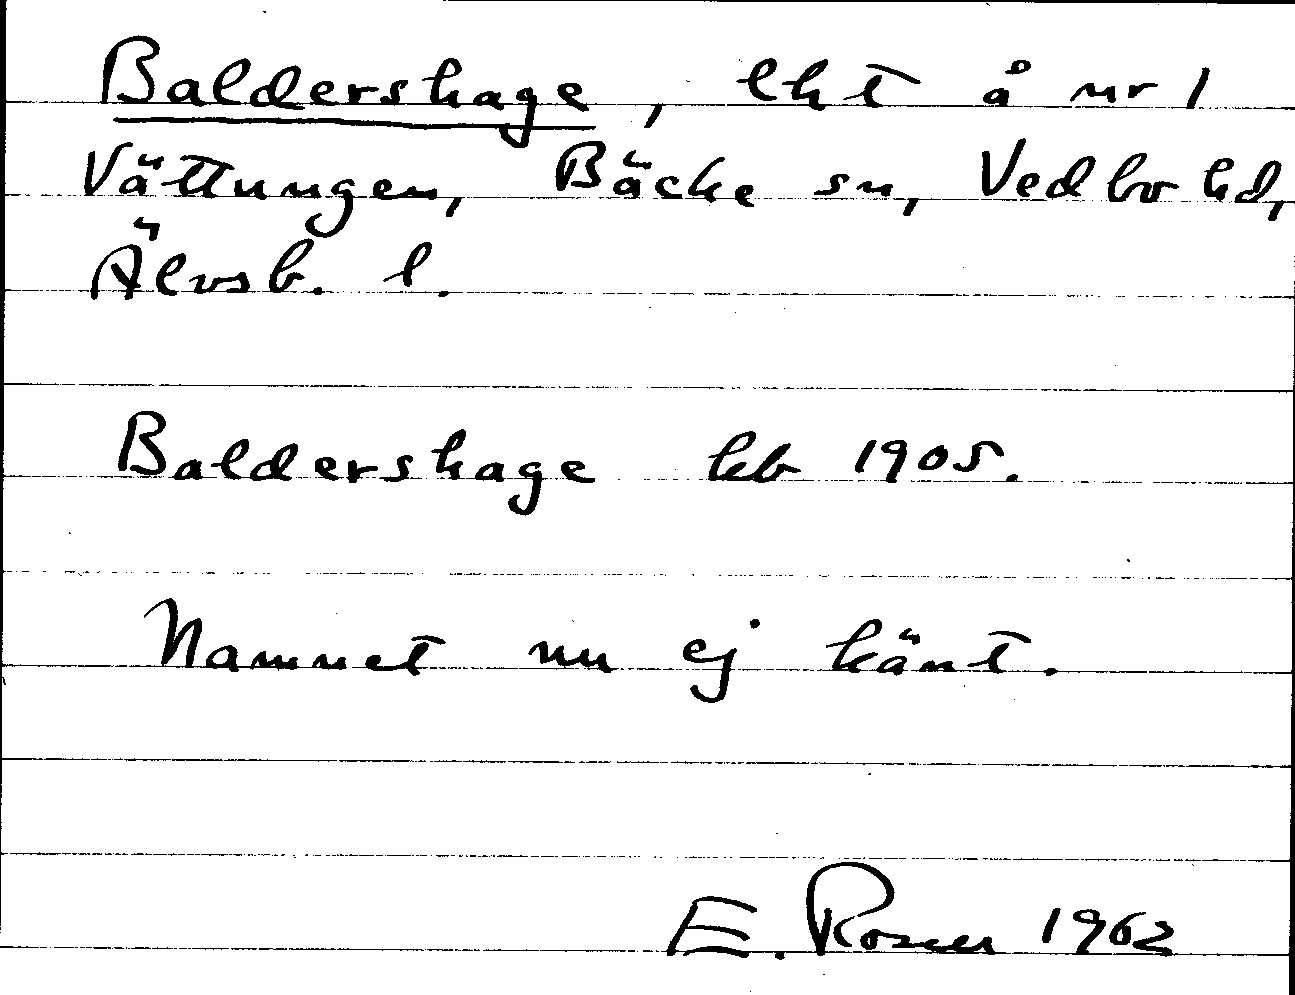 Baldershage, lht å nr 1
Vättungen, Bäcke sn, Vedbo hd,
Älvsb. l.
Baldershage kb 1905.
Namnet nu ej känt.
E. Rosner 1962